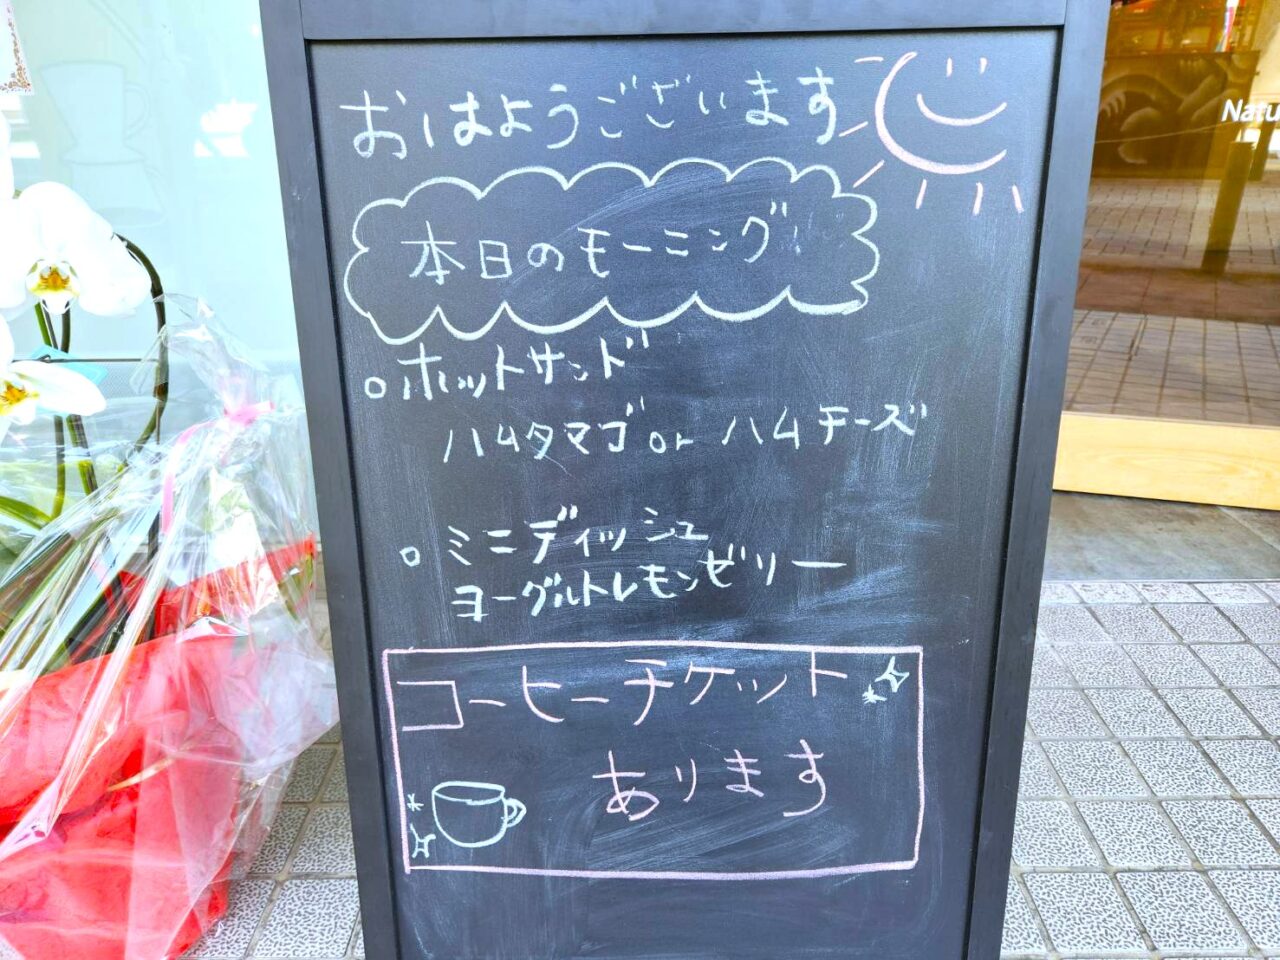 おはようございます
本日のモーニング
ホットサンド
ハムタマゴ or ハムチーズ
ミニディッシュ
ヨーグルトレモンゼリー
コーヒーチケット
あります
Natu